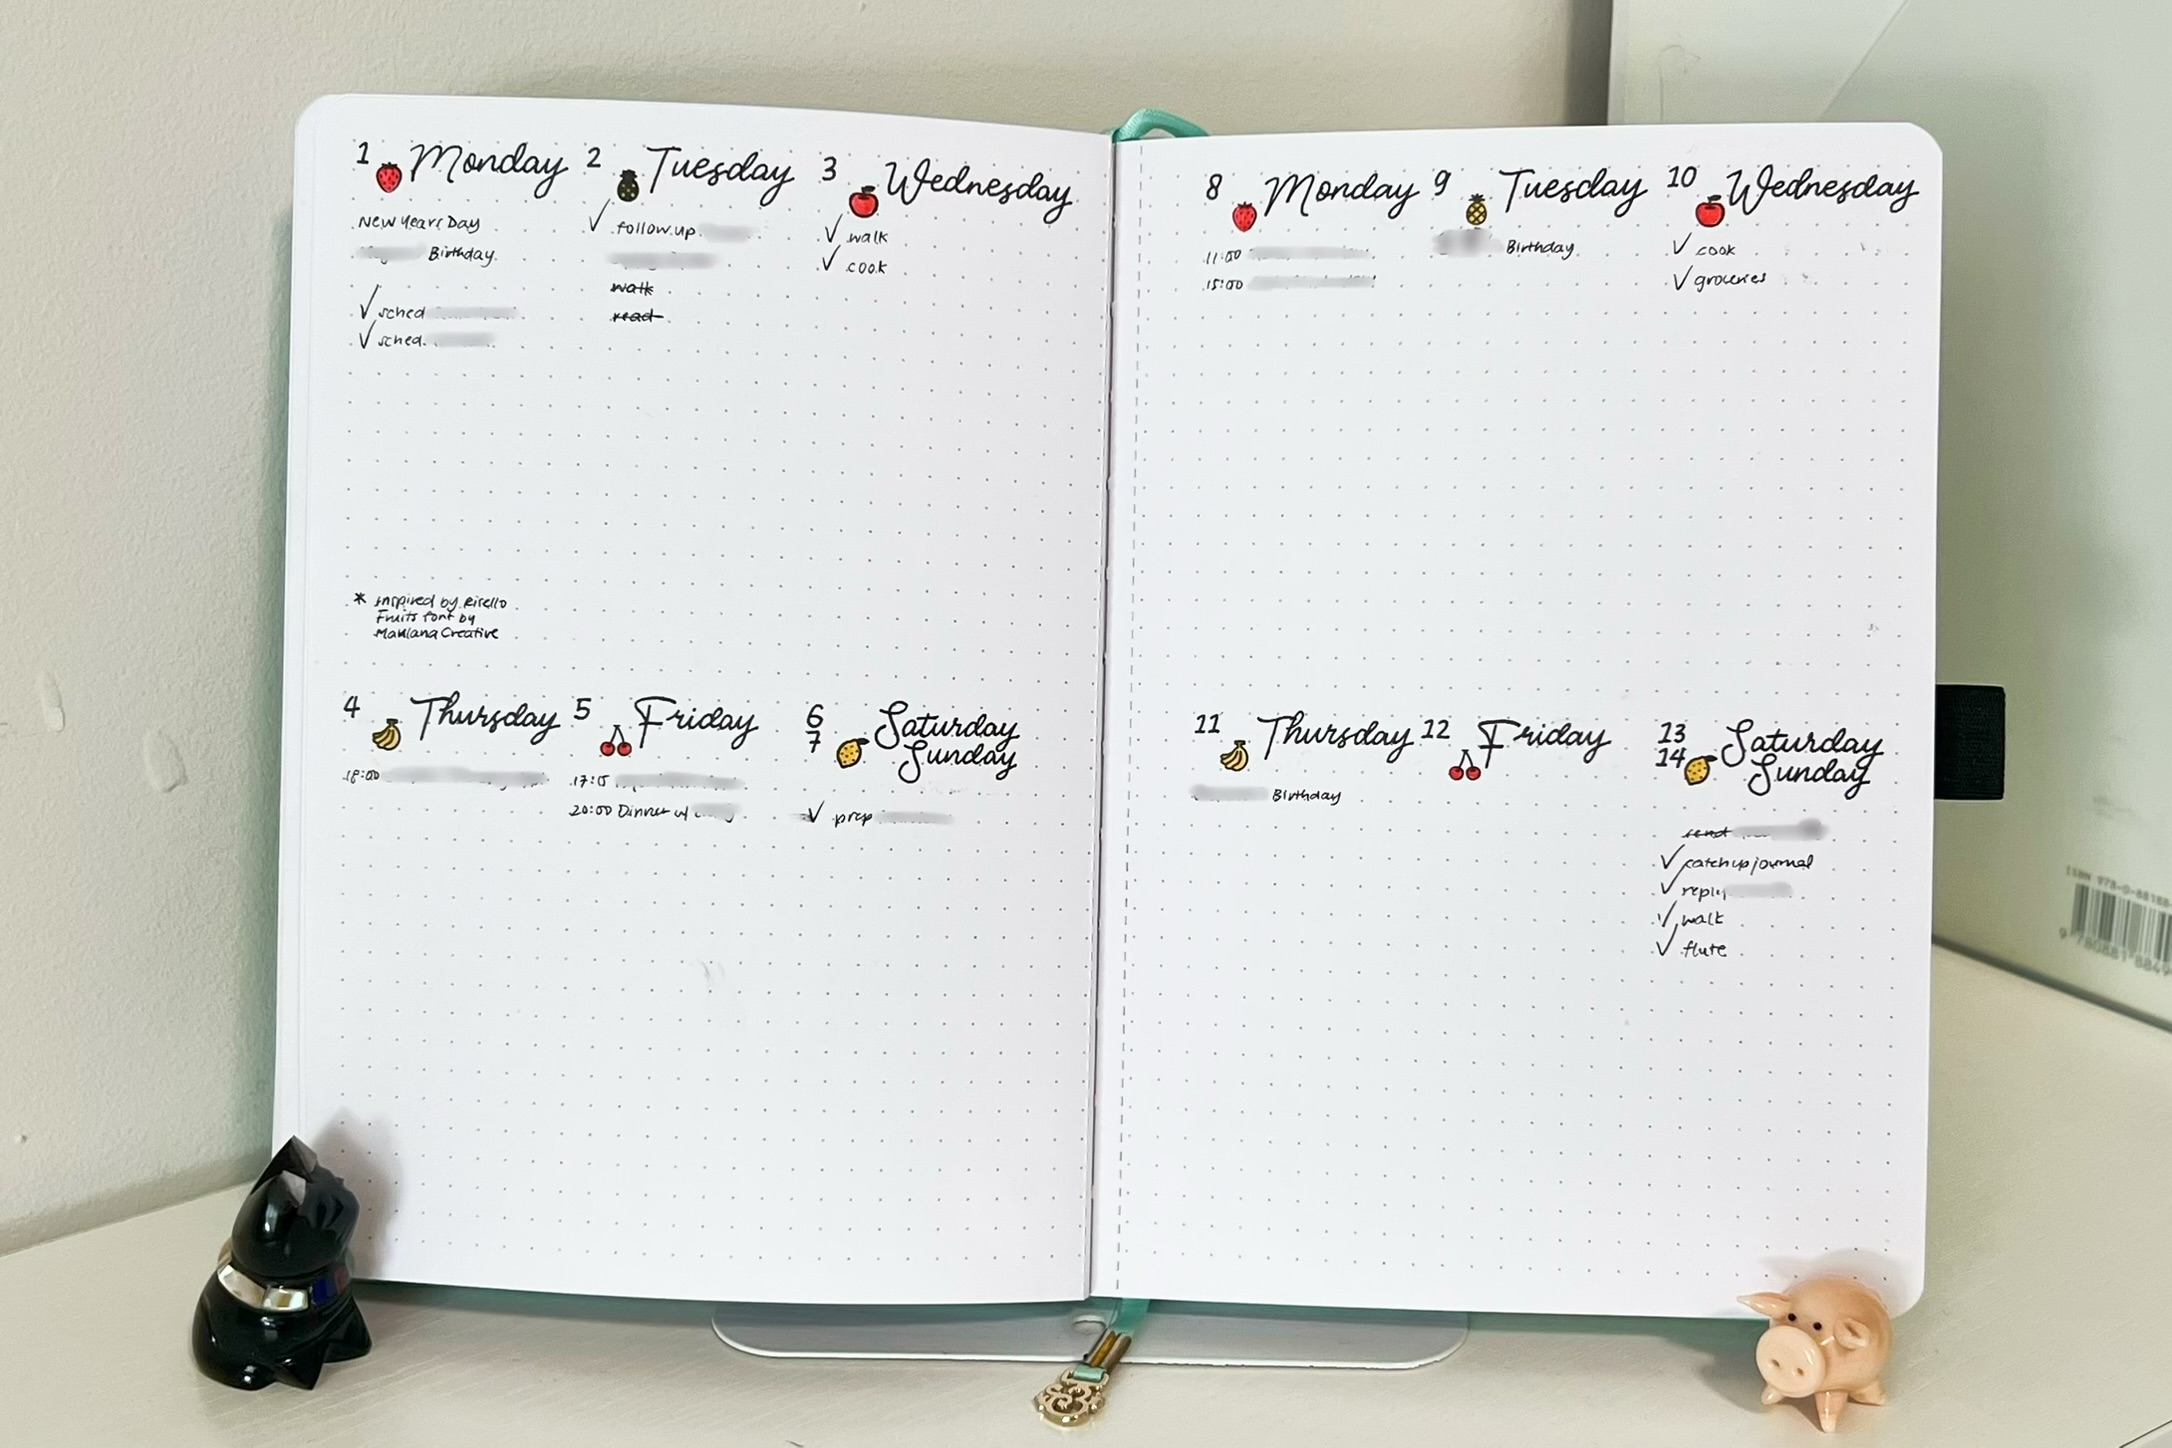 1 Monday
New Years Day
Birthday
✓ sched
✓ sched.
2 Tuesday
✓ follow up
walk
read
3 Wednesday
✓ walk
✓ cook
* inspired by Risello
Fruits font by
Maulana Creative
4 Thursday
18:00
5 Friday
17:15
20:00 Dinner w/
6 Saturday
7 Sunday
✓ prep
8 Monday
11:00
15:00
9 Tuesday
Birthday
10 Wednesday
✓ cook
✓ groceries
11 Thursday
Birthday
12 Friday
13 Saturday
14 Sunday
send
✓ catch up journal
✓ reply
✓ walk
✓ flute
ISBN 978-0-88188-
9 780881 8849